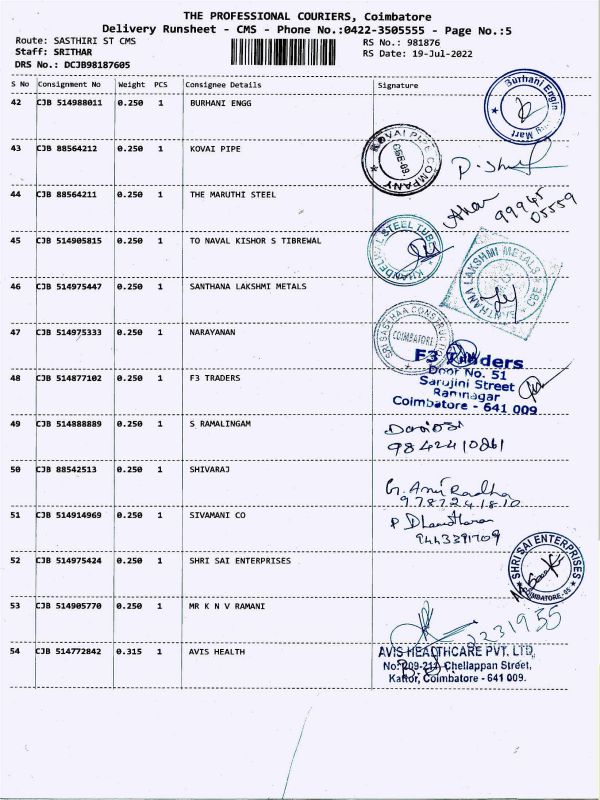 THE PROFESSIONAL COURIERS, Coimbatore
Delivery Runsheet - CMS - Phone No.:0422-3505555 - Page No.:5
Route: SASTHIRI ST CMS
RS No.: 981876
Staff: SRITHAR
RS Date: 19-Jul-2022
DRS No.: DCJB98187605
S No Consignment No Weight PCS Consignee Details Signature
42 CJB 514988011 0.250 1 BURHANI ENGG
Burhani Engin
Mart
43 CJB 88564212 0.250 1 KOVAI PIPE
KOVAI PIPE COMPANY
CBE-09.
44 CJB 88564211 0.250 1 THE MARUTHI STEEL
99945
05559
45 CJB 514905815 0.250 1 TO NAVAL KISHOR S TIBREWAL
STEEL TUBE
46 CJB 514975447 0.250 1 SANTHANA LAKSHMI METALS
SANTHANA LAKSHMI METALS
CBE
47 CJB 514975333 0.250 1 NARAYANAN
SRI SASTHAA CONSTRUCTION
COIMBATORE
48 CJB 514877102 0.250 1 F3 TRADERS
F3 Traders
Door No. 51
Sarojini Street
Ramnagar
Coimbatore - 641 009
49 CJB 514888889 0.250 1 S RAMALINGAM
9842410861
50 CJB 88542513 0.250 1 SHIVARAJ
G. Anu Radha
9787241810
51 CJB 514914969 0.250 1 SIVAMANI CO
9443391709
52 CJB 514975424 0.250 1 SHRI SAI ENTERPRISES
SHRI SAI ENTERPRISES
COIMBATORE
53 CJB 514905770 0.250 1 MR K N V RAMANI
2231955
54 CJB 514772842 0.315 1 AVIS HEALTH
AVIS HEALTHCARE PVT. LTD,
No: 209-211, Chellappan Street,
Kattor, Coimbatore - 641 009.